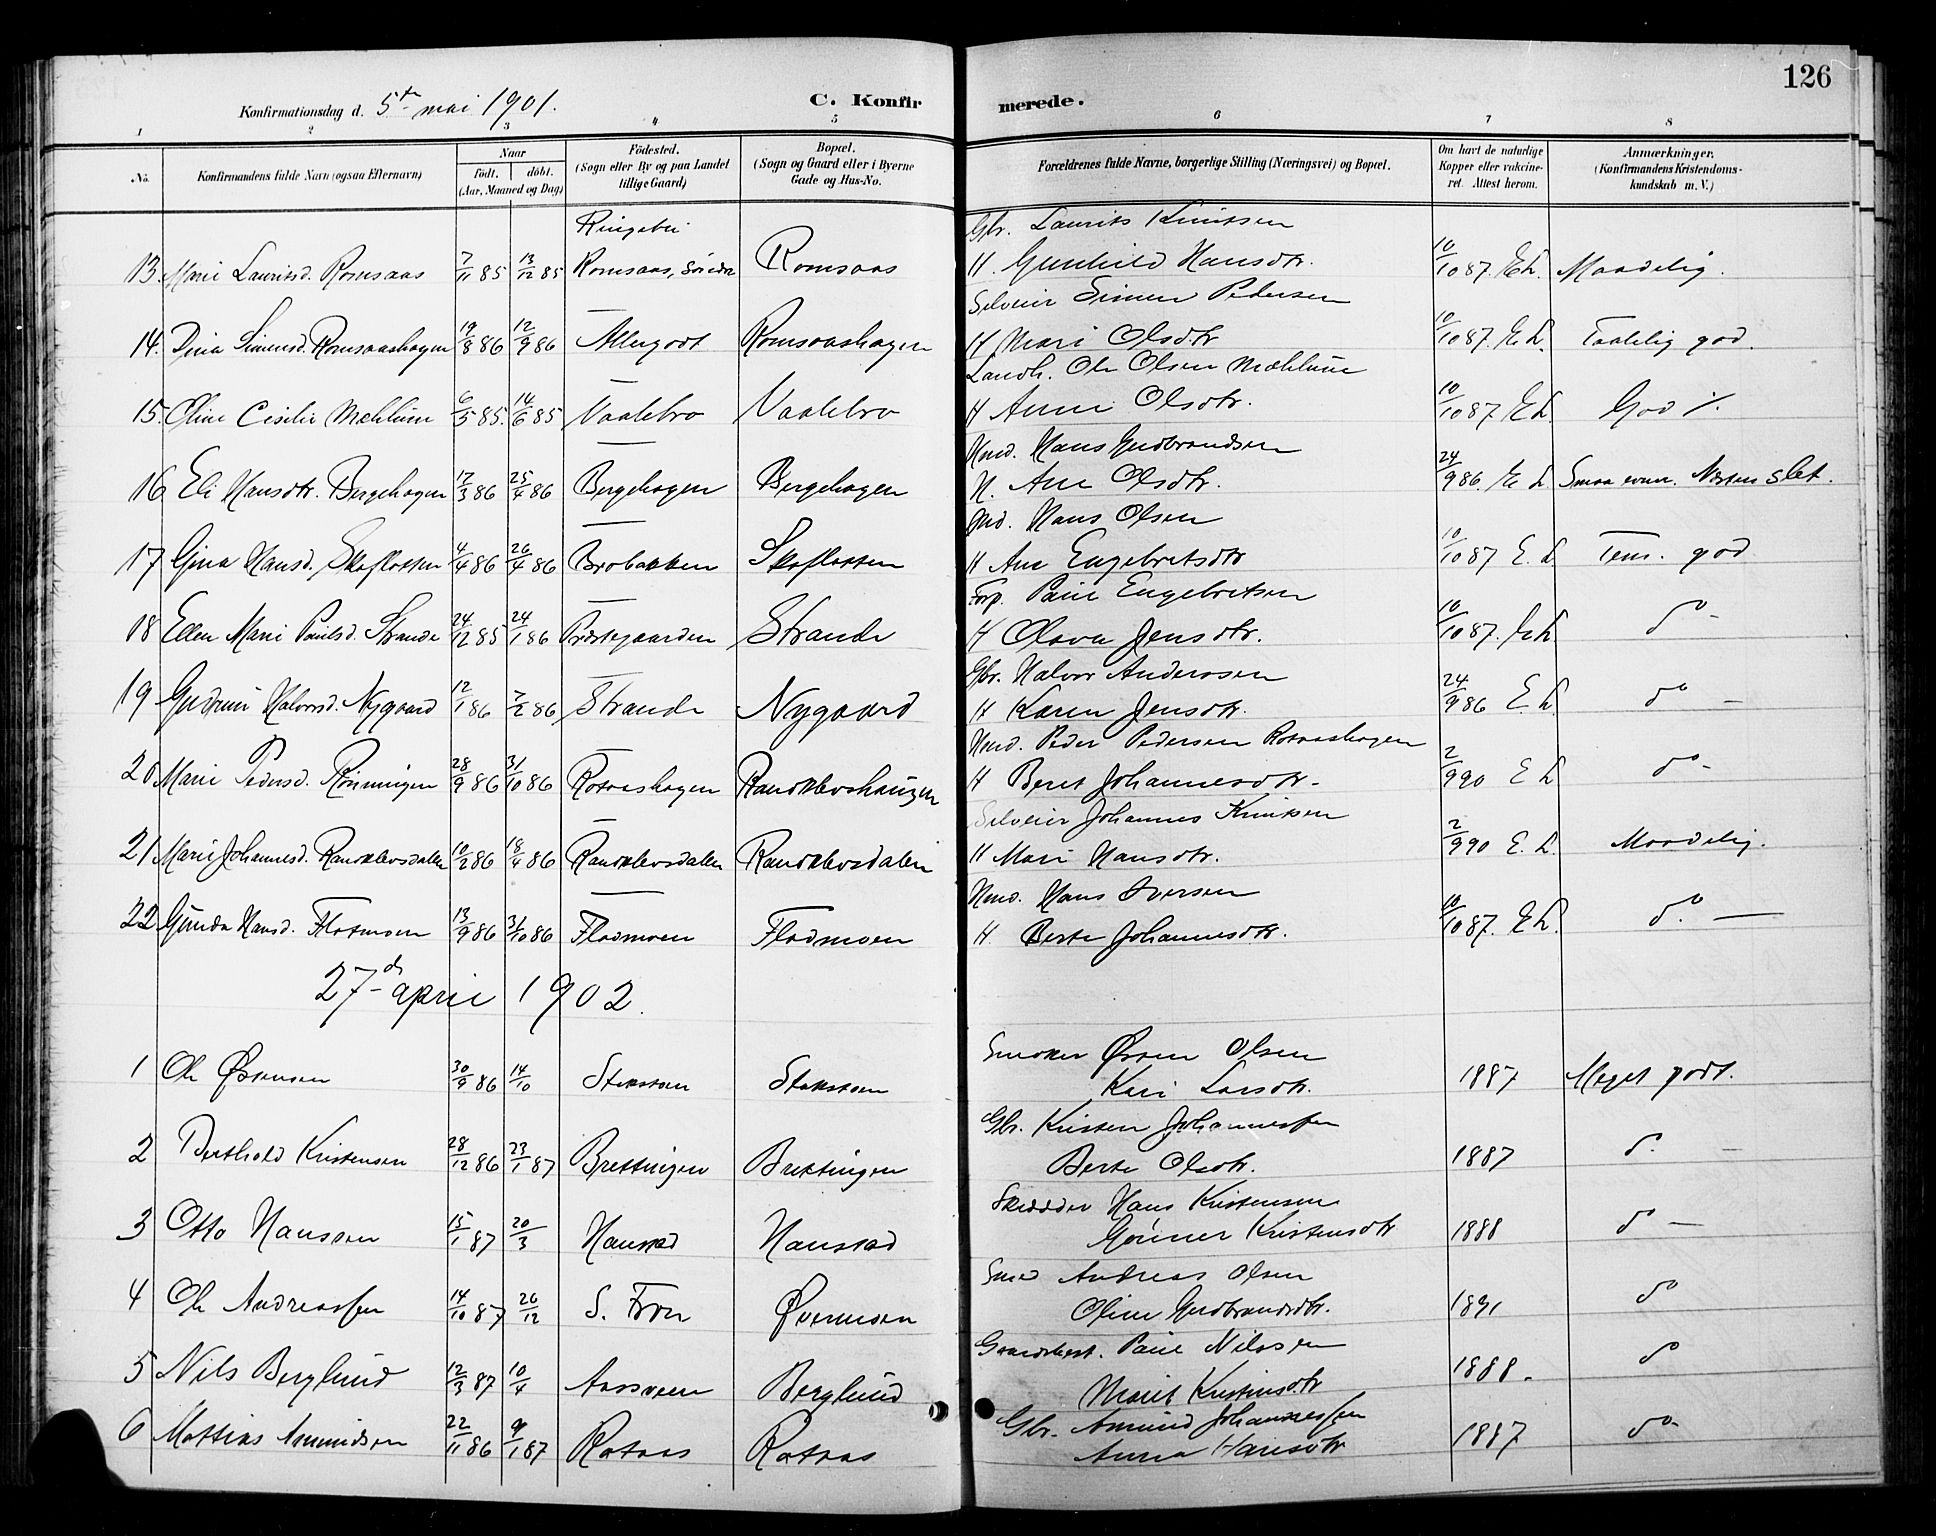 126
Konfirmationsdag d. 5te mai 1901. C. Konfirmerede.
1 2 3 4 5 6 7 8
No. Konfirmandens fulde Navn (ogsaa Efternavn) Naar født. døbt. (Aar, Maaned og Dag) Fødested. (Sogn eller By og paa Landet tillige Gaard) Bopæl. (Sogn og Gaard eller i Byerne Gade og Hus-No. Forældrenes fulde Navne, borgerlige Stilling (Næringsvei) og Bopæl. Om havt de naturlige Kopper eller vakcineret. Attest herom. Anmærkninger. (Konfirmandens Kristendomskundskab m. V.)
Ringebu Gbr. Laurits Knutsen
13. Marie Lauritsd. Romsaas 7/11 85 13/12 85 Romsaas, Søndre Romsaas H. Gunhild Hansdtr. 10/10 87. E L. Maadelig.
— Selveier Simen Pedersen
14. Dina Simensd. Romsaashagen 19/8 86 12/9 86 Allergodt Romsaashagen H Mari Olsdtr 10/10 87. E L. Taalelig god.
— Landh. Ole Olsen Mæhlum
15. Oline Cecilie Mæhlum 6/5 85. 14/6 85 Vaalebro Vaalebro H Anne Olsdtr. 10/10 87 E L. God
— Hmd. Hans Gudbrandsen
16 Eli Hansdtr. Bergehagen 17/3 86 25/4 86 Bergehagen Bergehagen H. Ane Olsdtr. 24/9 86. E L Smaa evner. Næsten slet.
— Hans Olsen
17 Gina Hansd. Skoflotten 4/4 86 26/4 86 Brobakken Skoflotten H Ane Engebretsdtr 10/10 87 E. L Tem. god
— Forp. Paul Engebretsen
18 Ellen Marie Paulsd. Strande 24/12 85 24/1 86 Præstegaarden Strande H Olava Jensdtr. 10/10 87. E L. do -
— Gbr. Halvor Anderssen
19 Gudrun Halvorsd. Nygaard 12/1 86 7/2 86 Strande Nygaard H Karen Jensdtr. 24/9 86 E. L. do —
— Hmd. Peder Pedersen Rotaashagen
20 Marie Pedersd. Rønningen 28/9 86 31/10 86 Rotaashagen Randklevshaugen H Beret Johannesdtr. 2/9 90 E L do -
— Selveier Johannes Knutsen
21. Marie Johannesd. Randklevsdalen 10/2 86 18/4 86 Randklevsdalen Randklevsdalen H Mari Hansdtr. 2/9 90 E. L. Maadelig.
— Hmd. Hans Iversen
22. Gunda Hansd. Flatmoen 13/9 86 31/10 86 Fladmoen Fladmoen H. Berte Johannesdtr. 10/10 87. E L. do. —
27de april 1902.
Smaaker Østen Olsen
1 Ole Østensen 30/9 86 14/10 Stensteen Kari Larsdtr. 1887 Meget godt.
Gbr. Kristen Johannessen
2 Berthold Kristensen 28/12 86 23/1 87 Brettingen Brettingen Berte Olsdtr. 1887 do. —
Skrædder Hans Kristensen
3 Otto Hanssen 15/1 87 20/3 Hanstad Hanstad Gunner Kristensdtr 1888 do —
Smed Andreas Olsen
4 Ole Andreassen 14/10 87 26/12 S. Fron Øvermoen Oline Gudbrandsdtr. 1891 do
Gaardbest. Paul Nilssen
5 Nils Berglund 12/3 87 10/4 Aasveen Berglund Marit Kristensdtr 1888. do
Gbr. Amund Johannessen
6 Mattias Amundsen 22/11 86 9/1 87 Rotaas Rotaas Anna Hansdtr 1887 do-